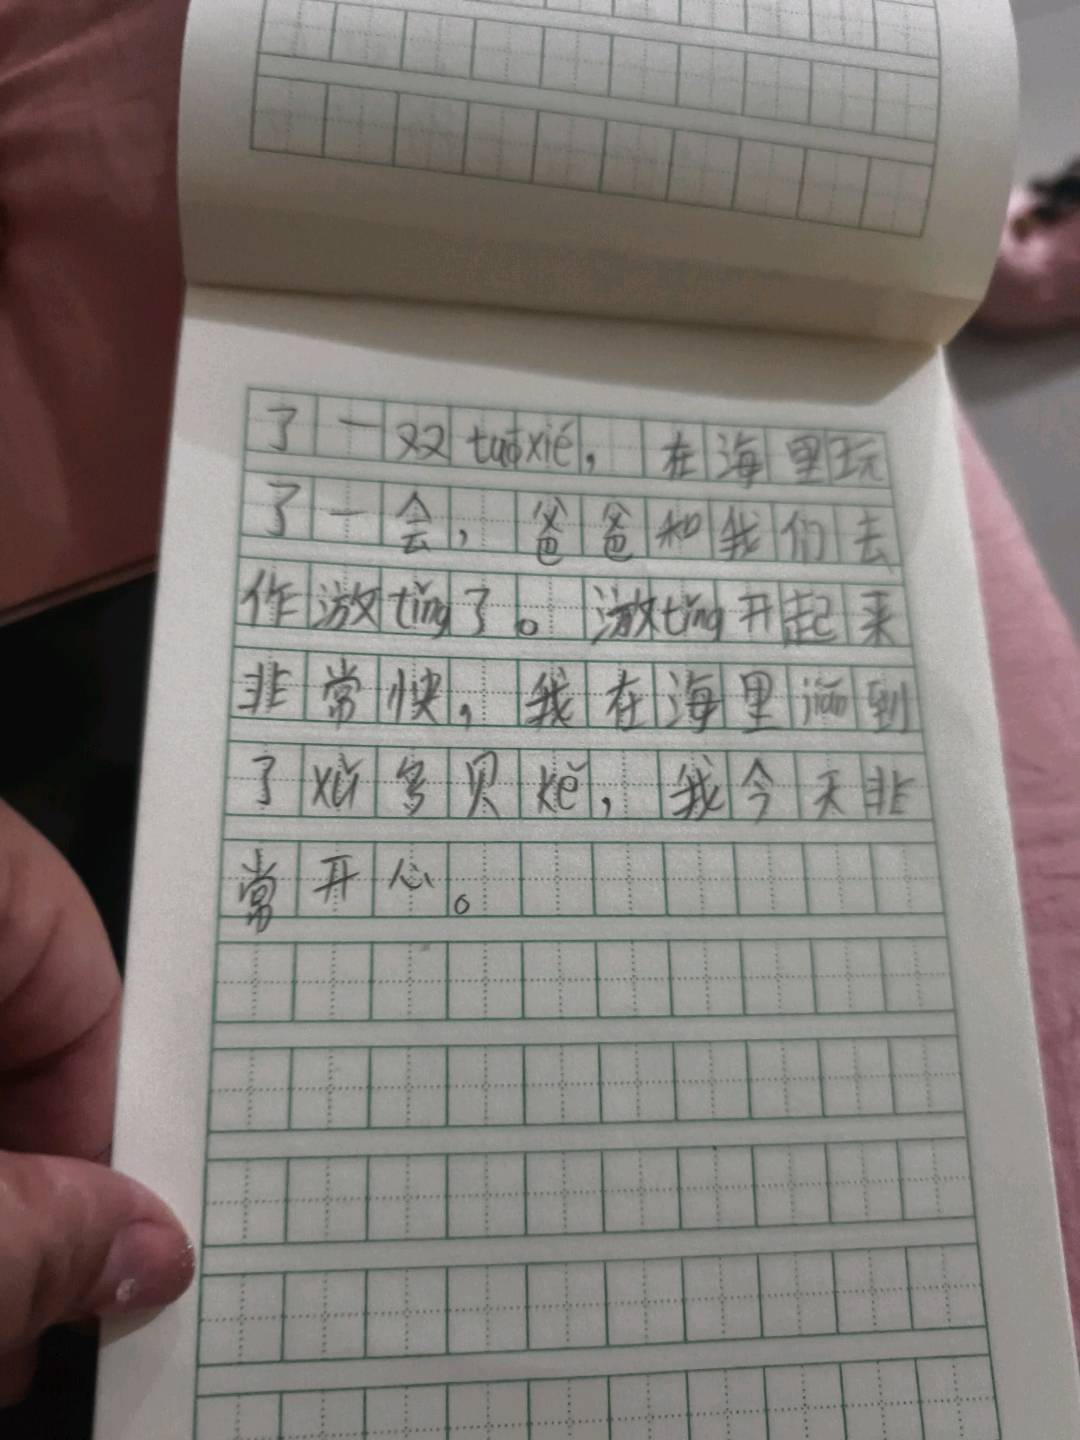 了一双tuōxié，在海里玩
了一会，爸爸和我们去
作激tǐng了。激tǐng开起来
非常快，我在海里jiǎn到
了xǔ多贝ké，我今天非
常开心。